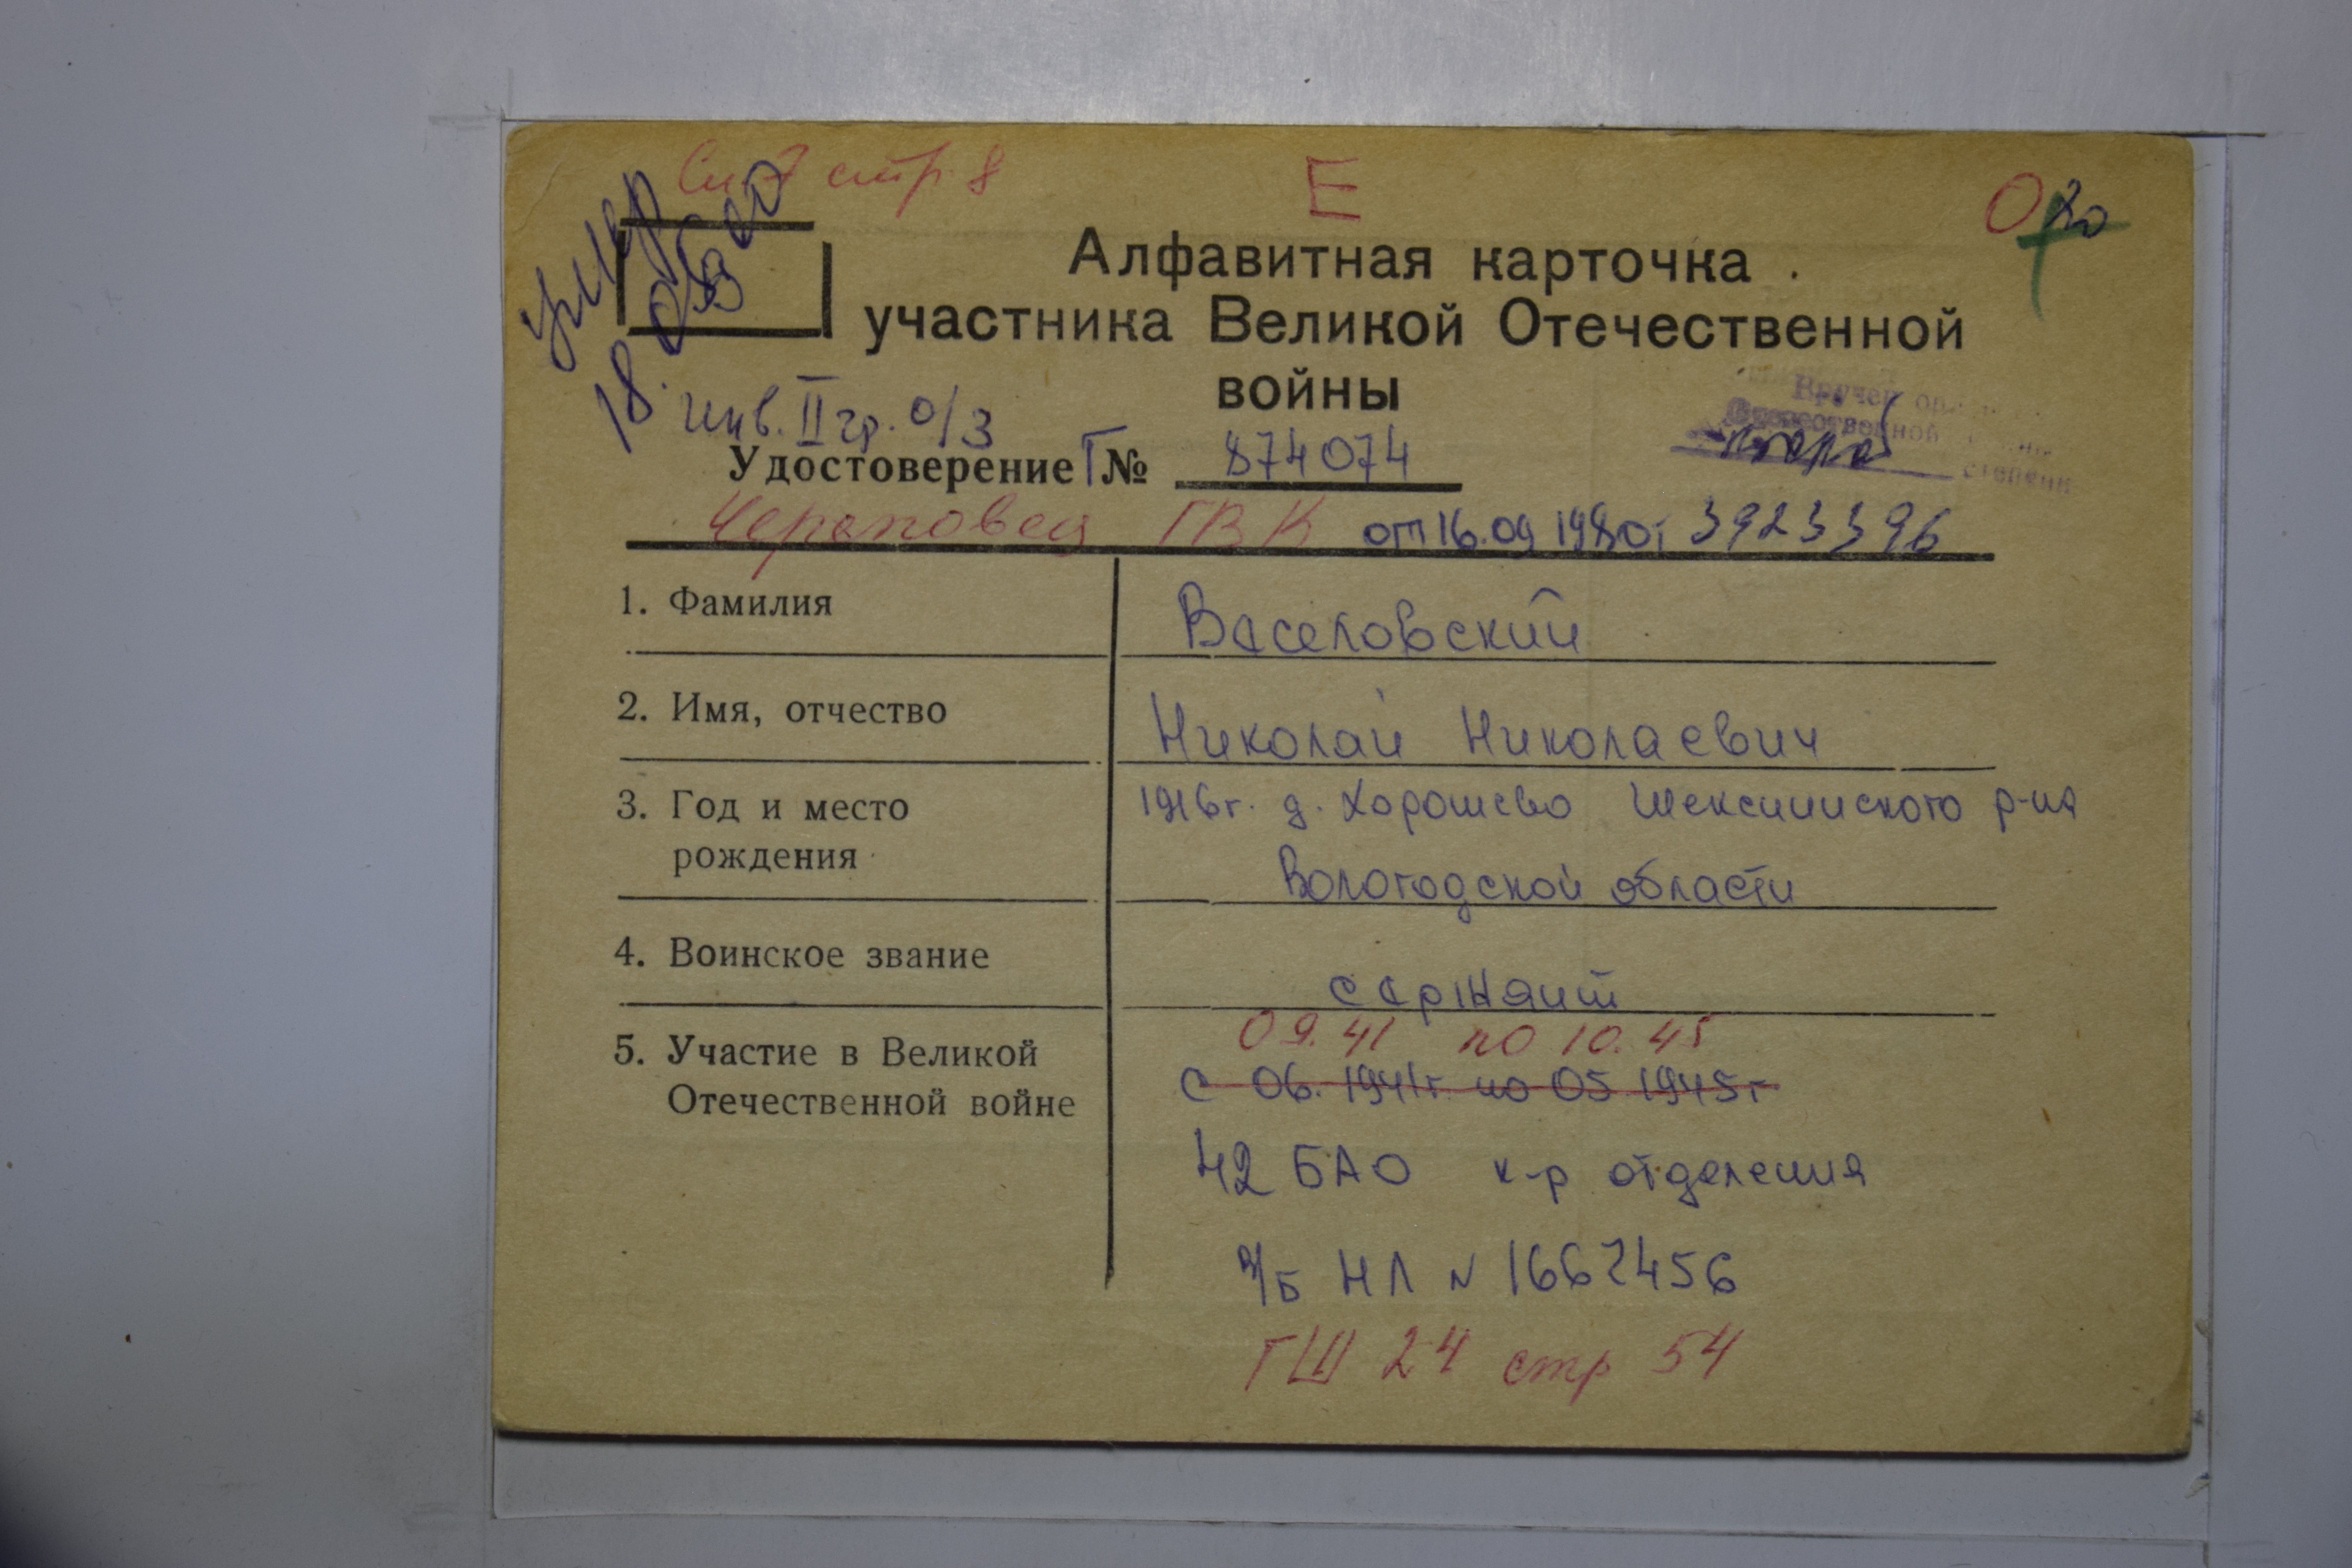 стр. 8
Е
Алфавитная карточка
участника Великой Отечественной
войны
умер
18.
инв. II гр. о/з
Вручен
Отечественной
степени
Удостоверение Г № 874074
Череповец ГВК от 16.09 1980г 3923396
1. Фамилия Веселовский
2. Имя, отчество Николай Николаевич
3. Год и место рождения 1916г. д. Хорошево Шекснинского р-на
Вологодской области
4. Воинское звание сержант
09.41 по 10.45
5. Участие в Великой Отечественной войне с 06.1941г по 05 1945г
42 БАО к-р отделения
в/б НЛ N 1667456
ГШ 24 стр 54